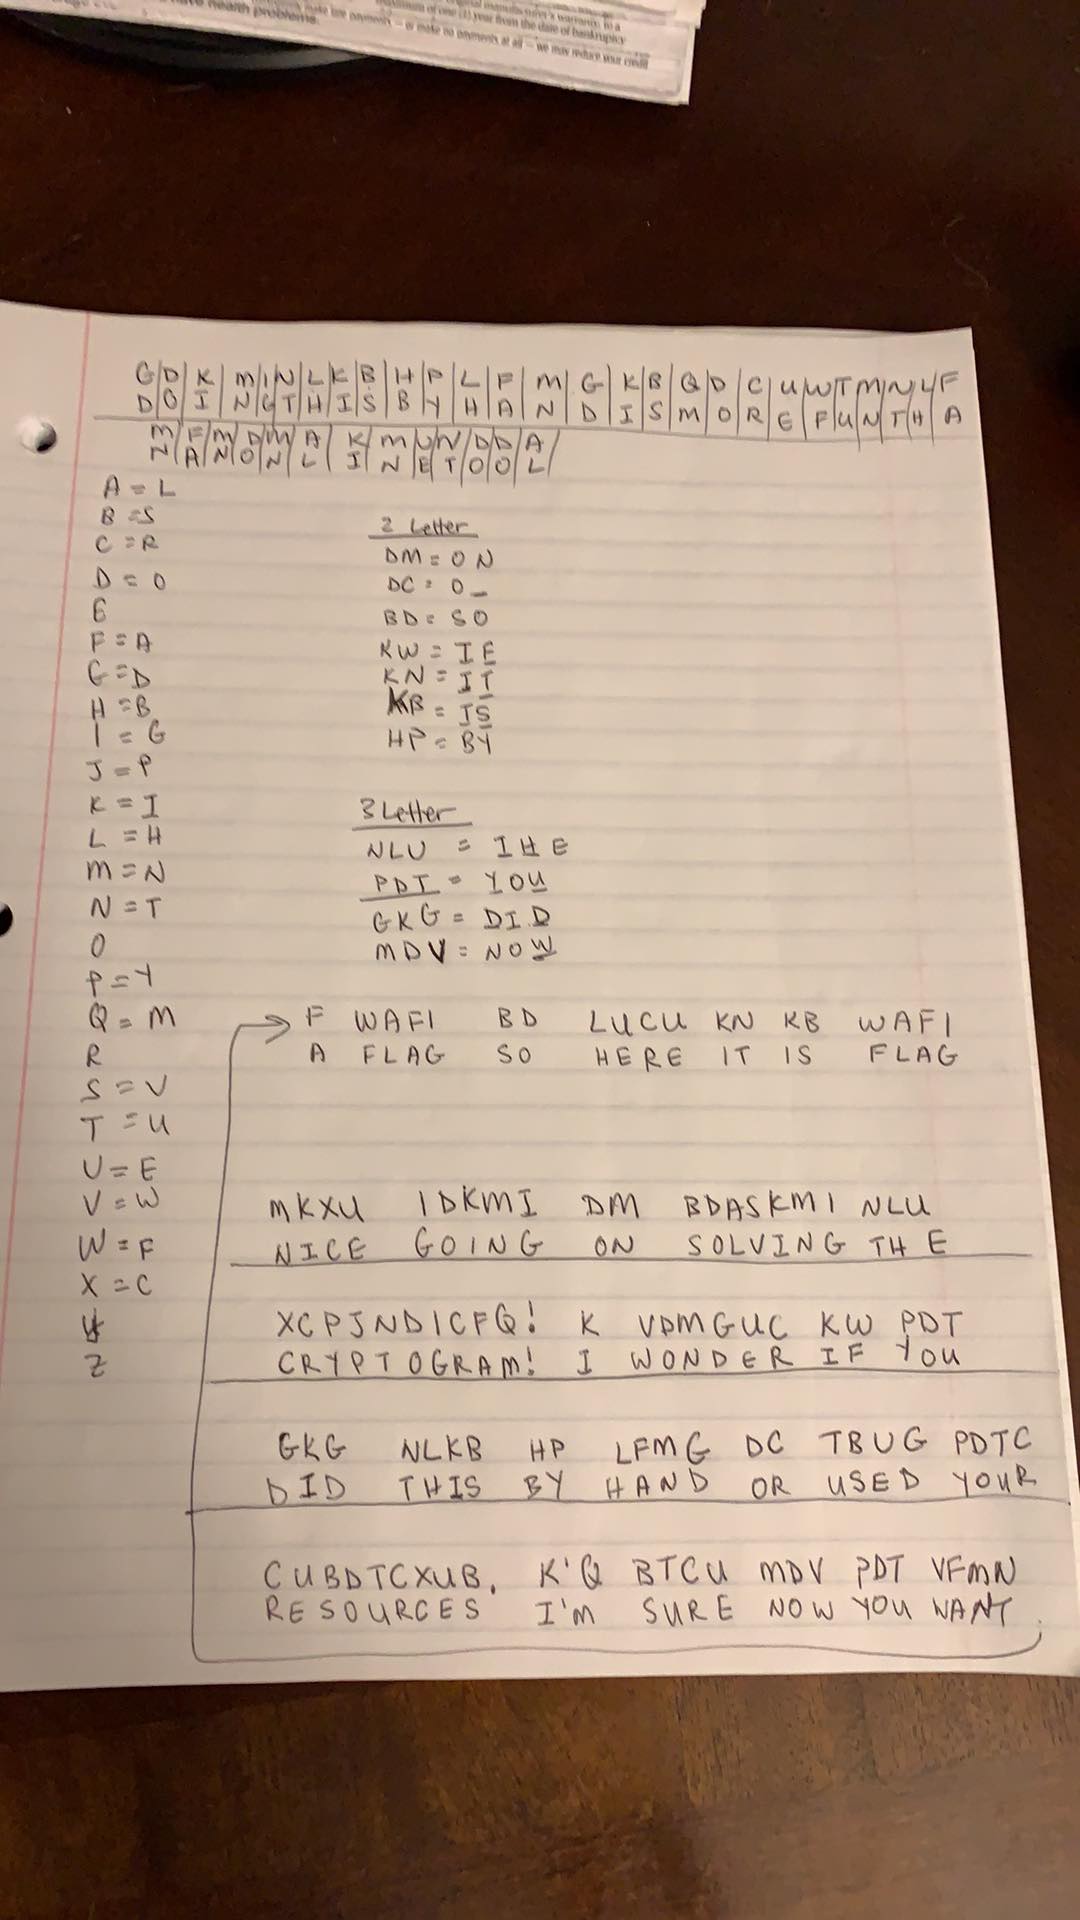 have health problems.
make late payments – or make no payments at all – we may reduce your credit
maximum of one (1) year from the date of bankruptcy
manufacturer's warranty, to a
G|D|K|M|I|N|L|K|B|H|P|L|F|M|G|K|B|Q|D|C|U|W|T|M|N|L|F
D|O|I|N|G|T|H|I|S|B|Y|H|A|N|D|I|S|M|O|R|E|F|U|N|T|H|A
M|F|M|D|M|A|K|M|U|N|D|D|A|
N|A|N|O|N|L|I|N|E|T|O|O|L|
A = L
B = S
C = R
D = O
E
F = A
G = D
H = B
I = G
J = P
K = I
L = H
M = N
N = T
O
P = Y
Q = M
R
S = V
T = U
U = E
V = W
W = F
X = C
Y
Z
2 Letter
DM = ON
DC = O_
BD = SO
KW = IF
KN = IT
KB = IS
HP = BY
3 Letter
NLU = THE
PDT = YOU
GKG = DID
MDV = NOW
F WAFI BD LUCU KN KB WAFI
A FLAG SO HERE IT IS FLAG
MKXU IDKMI DM BDASKMI NLU
NICE GOING ON SOLVING THE
XCPJNDICFQ! K VDMGUC KW PDT
CRYPTOGRAM! I WONDER IF YOU
GKG NLKB HP LFMG DC TBUG PDTC
DID THIS BY HAND OR USED YOUR
CUBDTCXUB. K'Q BTCU MDV PDT VFMN
RESOURCES I'M SURE NOW YOU WANT